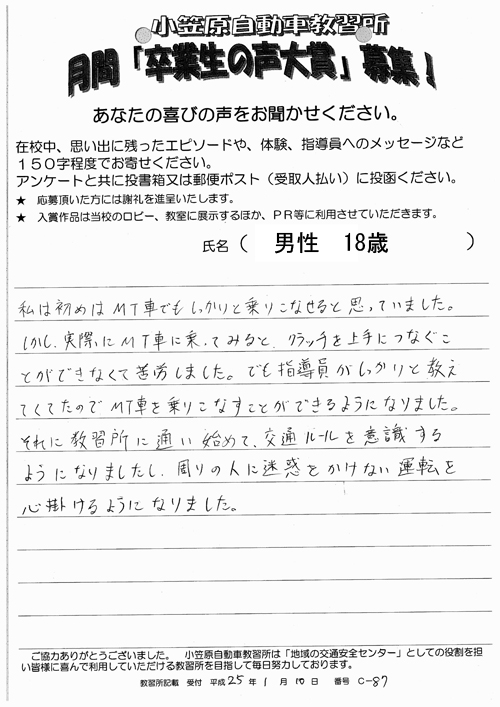 小笠原自動車教習所
月間「卒業生の声大賞」募集!
あなたの喜びの声をお聞かせください。
在校中、思い出に残ったエピソードや、体験、指導員へのメッセージなど
150字程度でお寄せください。
アンケートと共に投書箱又は郵便ポスト(受取人払い)に投函ください。
★ 応募頂いた方には謝礼を進呈いたします。
★ 入賞作品は当校のロビー、教室に展示するほか、PR等に利用させていただきます。
氏名( 男性 18歳 )
私は初めはMT車でもしっかりと乗りこなせると思っていました。
しかし、実際にMT車に乗ってみると、クラッチを上手につなぐこ
とができなくて苦労しました。でも指導員がしっかりと教え
てくてたのでMT車を乗りこなすことができるようになりました。
それに教習所に通い始めて、交通ルールを意識する
ようになりましたし、周りの人に迷惑をかけない運転を
心掛けるようになりました。
ご協力ありがとうございました。 小笠原自動車教習所は「地域の交通安全センター」としての役割を担
い皆様に喜んで利用していただける教習所を目指して毎日努力しております。
教習所記載 受付 平成25年1月10日 番号 C-87